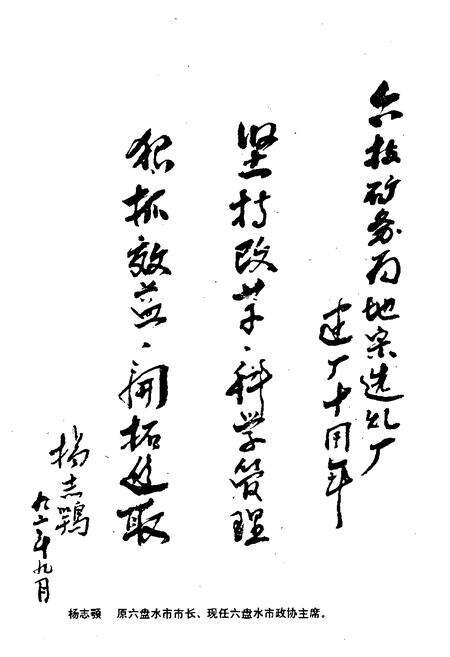 六枝矿务局地宗选煤厂
建厂十周年
坚持改革、科学管理
狠抓效益、开拓进取
杨志鹗
九二年九月
杨志颚 原六盘水市市长、现任六盘水市政协主席。